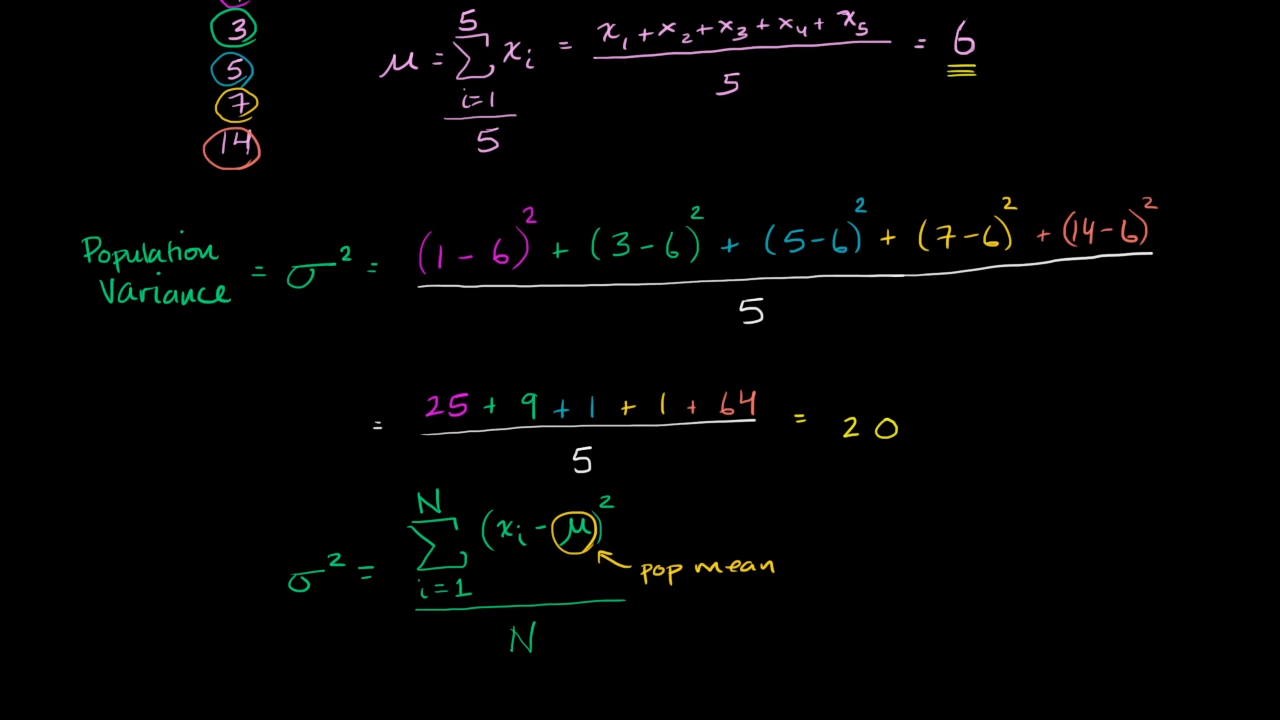 3
5
7
14
μ = 5 Σ i=1 xᵢ / 5 = x₁ + x₂ + x₃ + x₄ + x₅ / 5 = 6
Population
Variance
= σ² = (1 - 6)² + (3 - 6)² + (5 - 6)² + (7 - 6)² + (14 - 6)² / 5
= 25 + 9 + 1 + 1 + 64 / 5 = 20
σ² = N Σ i=1 (xᵢ - μ)² / N
pop mean